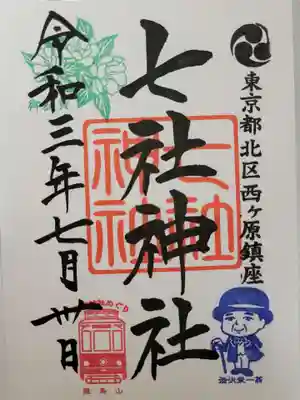 東京都北区西ヶ原鎮座
七社神社
令和三年七月卅日
飛鳥山
渋沢栄一翁